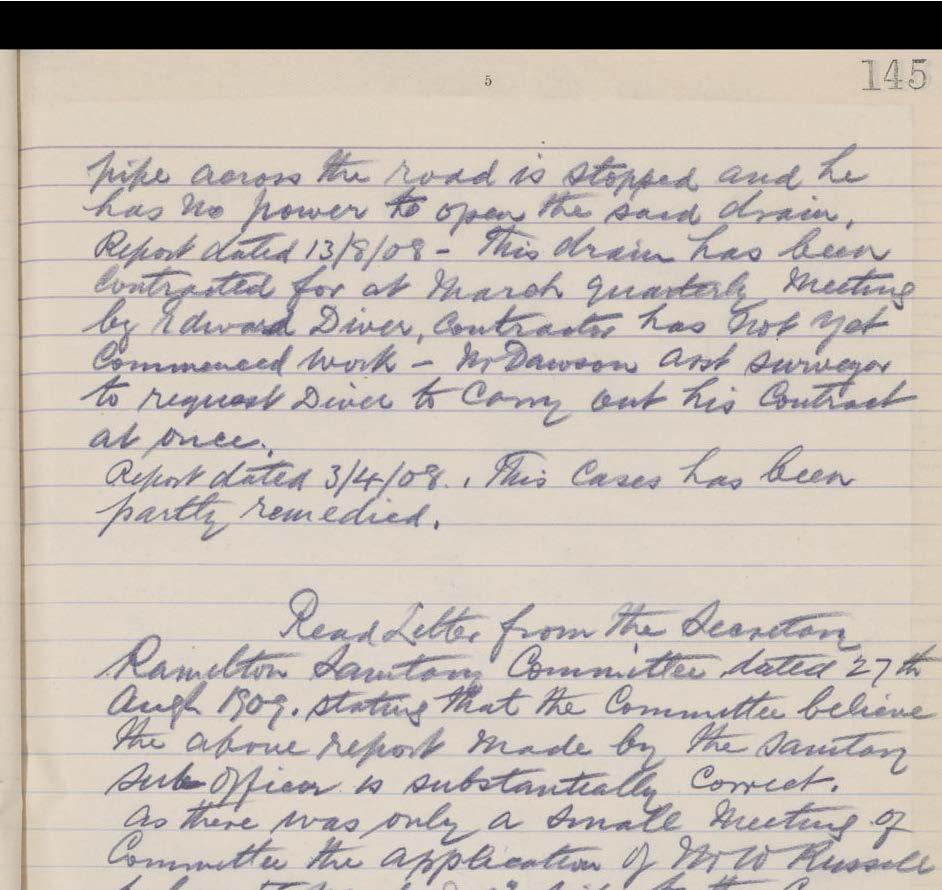 5
145
pipe across the road is stopped and he
has no power to open the said drain.
Report dated 13/8/08 – This drain has been
Contracted for at March Quarterly Meeting
by Edward Diver, Contractor has not yet
Commenced work – Mr Dawson asst surveyor
to request Diver to Carry out his Contract
at once.
Report dated 3/4/08. This Cases has been
partly remedied.
Read Letter from the Secretary
Ramelton Sanitary Committee dated 27th
Augt 1909. stating that the Committee believe
the above report made by the Sanitary
Sub Officer is substantially Correct.
As there was only a small Meeting of
Committee the application of Mr W Russell